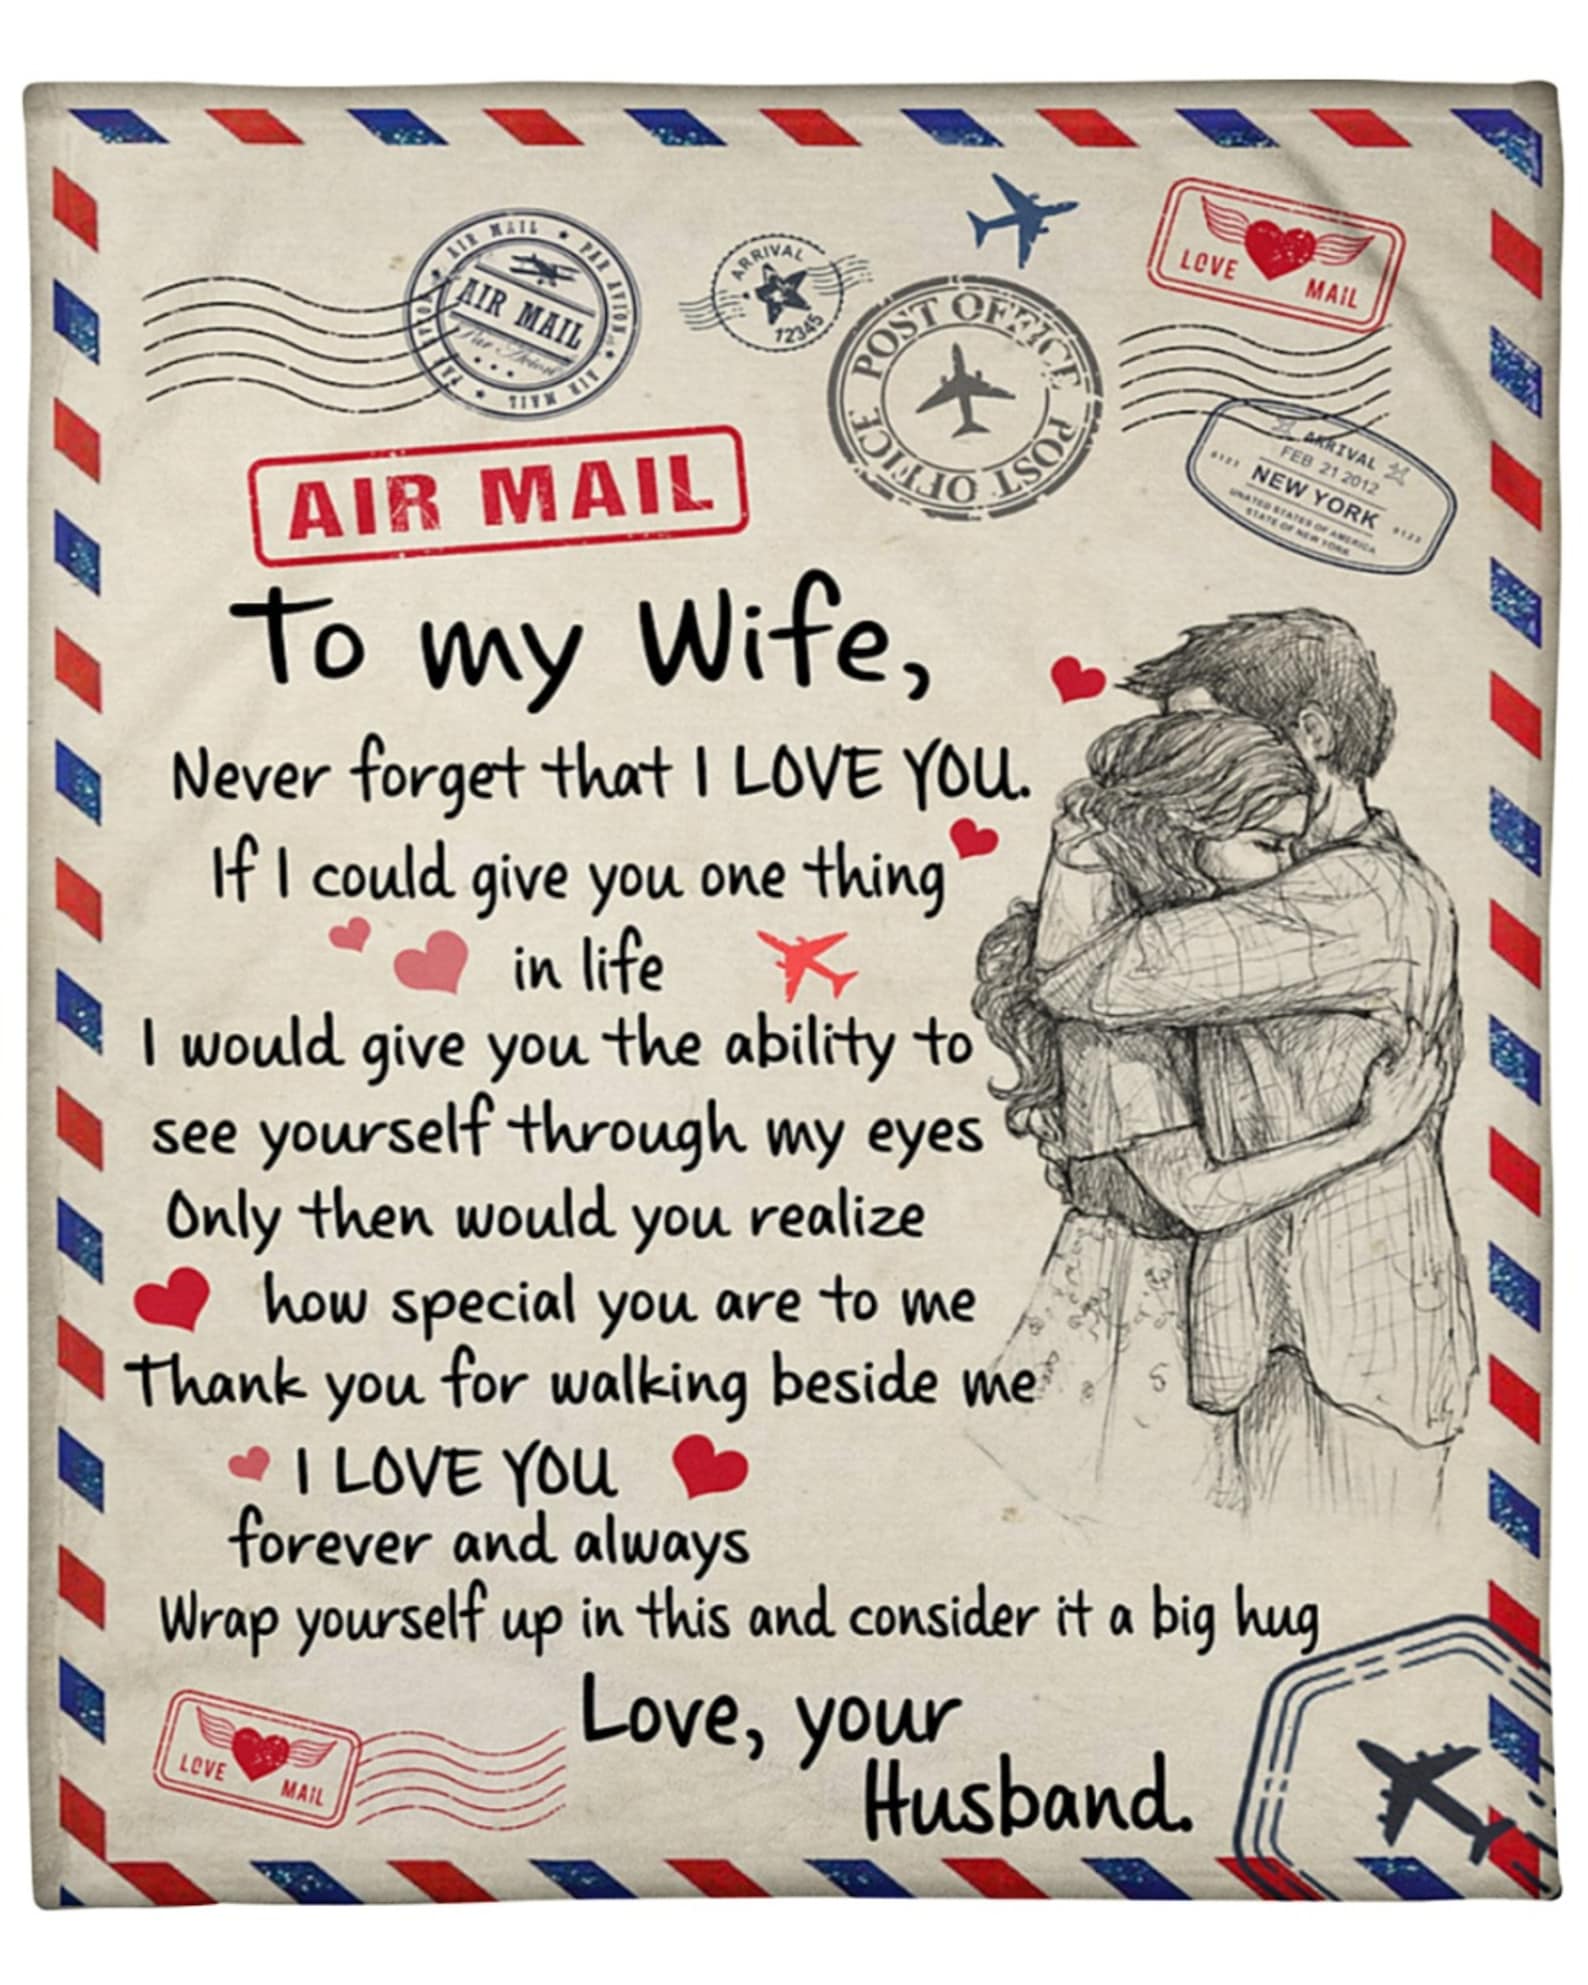 AIR MAIL ★ PAR AVION ★ AIR MAIL ★ PAR AVION ★
AIR MAIL
Par Avion
ARRIVAL
12345
POST OFFICE POST OFFICE
LOVE
MAIL
ARRIVAL
FEB 21 2012
0123 NEW YORK 0123
UNATED STATES OF AMERICA
STATE OF NEW YORK
AIR MAIL
To my Wife,
Never forget that I LOVE YOU.
If I could give you one thing
in life
I would give you the ability to
see yourself through my eyes
Only then would you realize
how special you are to me
Thank you for walking beside me
I LOVE YOU
forever and always
Wrap yourself up in this and consider it a big hug
Love, your
Husband.
LOVE
MAIL